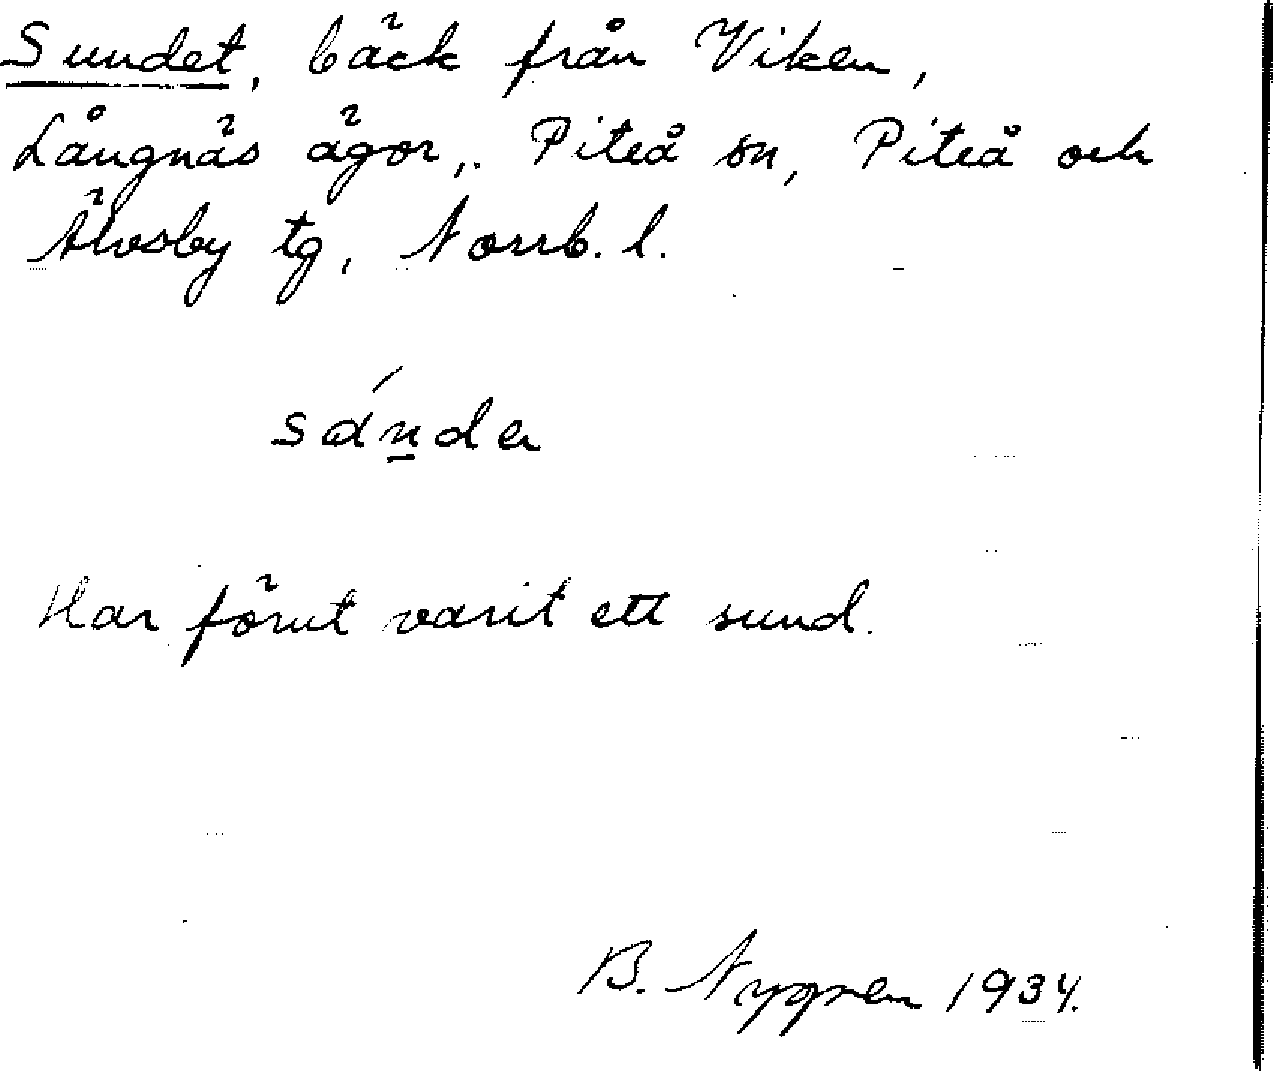 Sundet, bäck från Viken,
Långnäs ägor, Piteå sn, Piteå och
Älvsby tg, Norrb. l.
Har förut varit ett sund.
B. Nygren 1934.